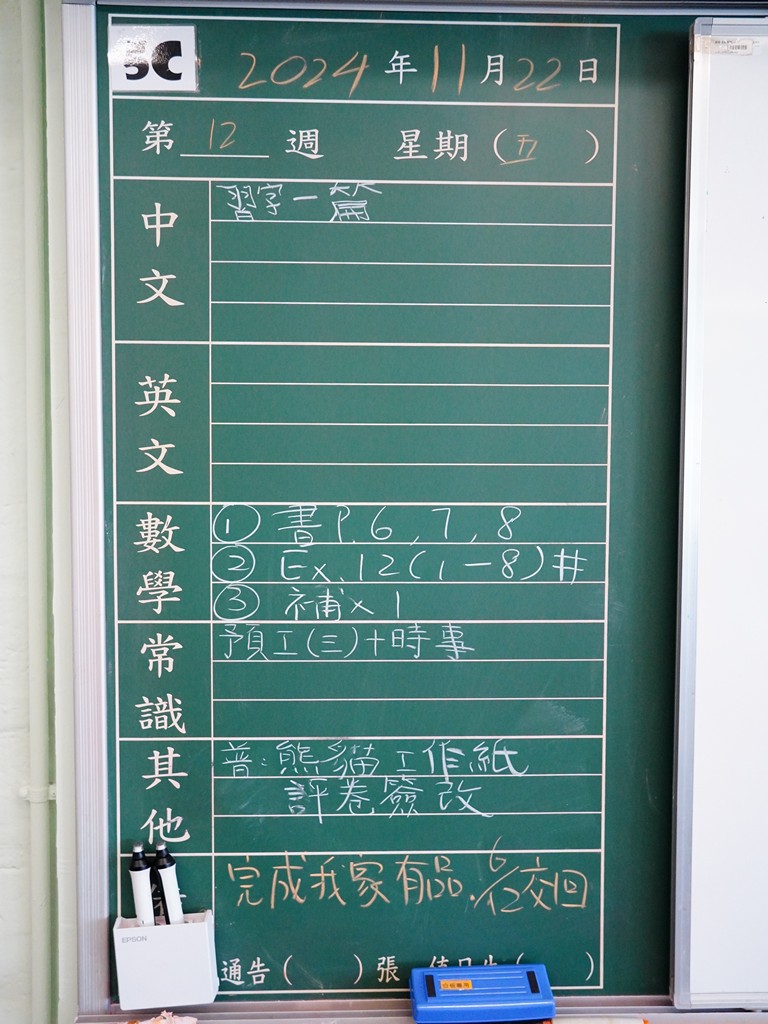 3C
2024年11月22日
第12週 星期（五）
中文
習字一篇
英文
數學
① 書P.6,7,8
② Ex.12(1-8)#
③ 補x1
常識
預工(三)+時事
其他
普:熊貓工作紙
評卷簽改
完成我家有品.6/12交回
EPSON
通告（ ）張 值日生（ ）
白板專用